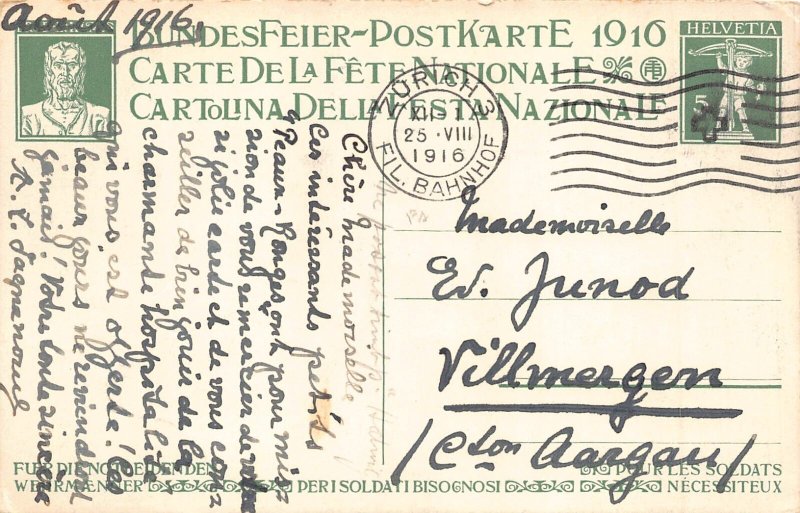 Août 1916.
BUNDESFEIER-POSTKARTE 1916
CARTE DE LA FÊTE NATIONALE
CARTOLINA DELLA FESTA NAZIONALE
HELVETIA
5
ZÜRICH 3
XII-1
25.VIII
1916
FIL. BAHNHOF
Chère Mademoiselle
Ces intéressants petits
Peaux-Rouges ont pour mis-
sion de vous remercier de votre
si jolie carte et de vous conseiller
de bien jouir de la
charmante hospitalité
qui vous est offerte! Ces
beaux jours ne reviendront
jamais! Votre toute sincère
Mademoiselle
Ed. Junod
Villmergen
(Cton Aargau)
FÜR DIE NOTLEIDENDEN
WEHRMÄNNER
PER I SOLDATI BISOGNOSI
POUR LES SOLDATS
NÉCESSITEUX